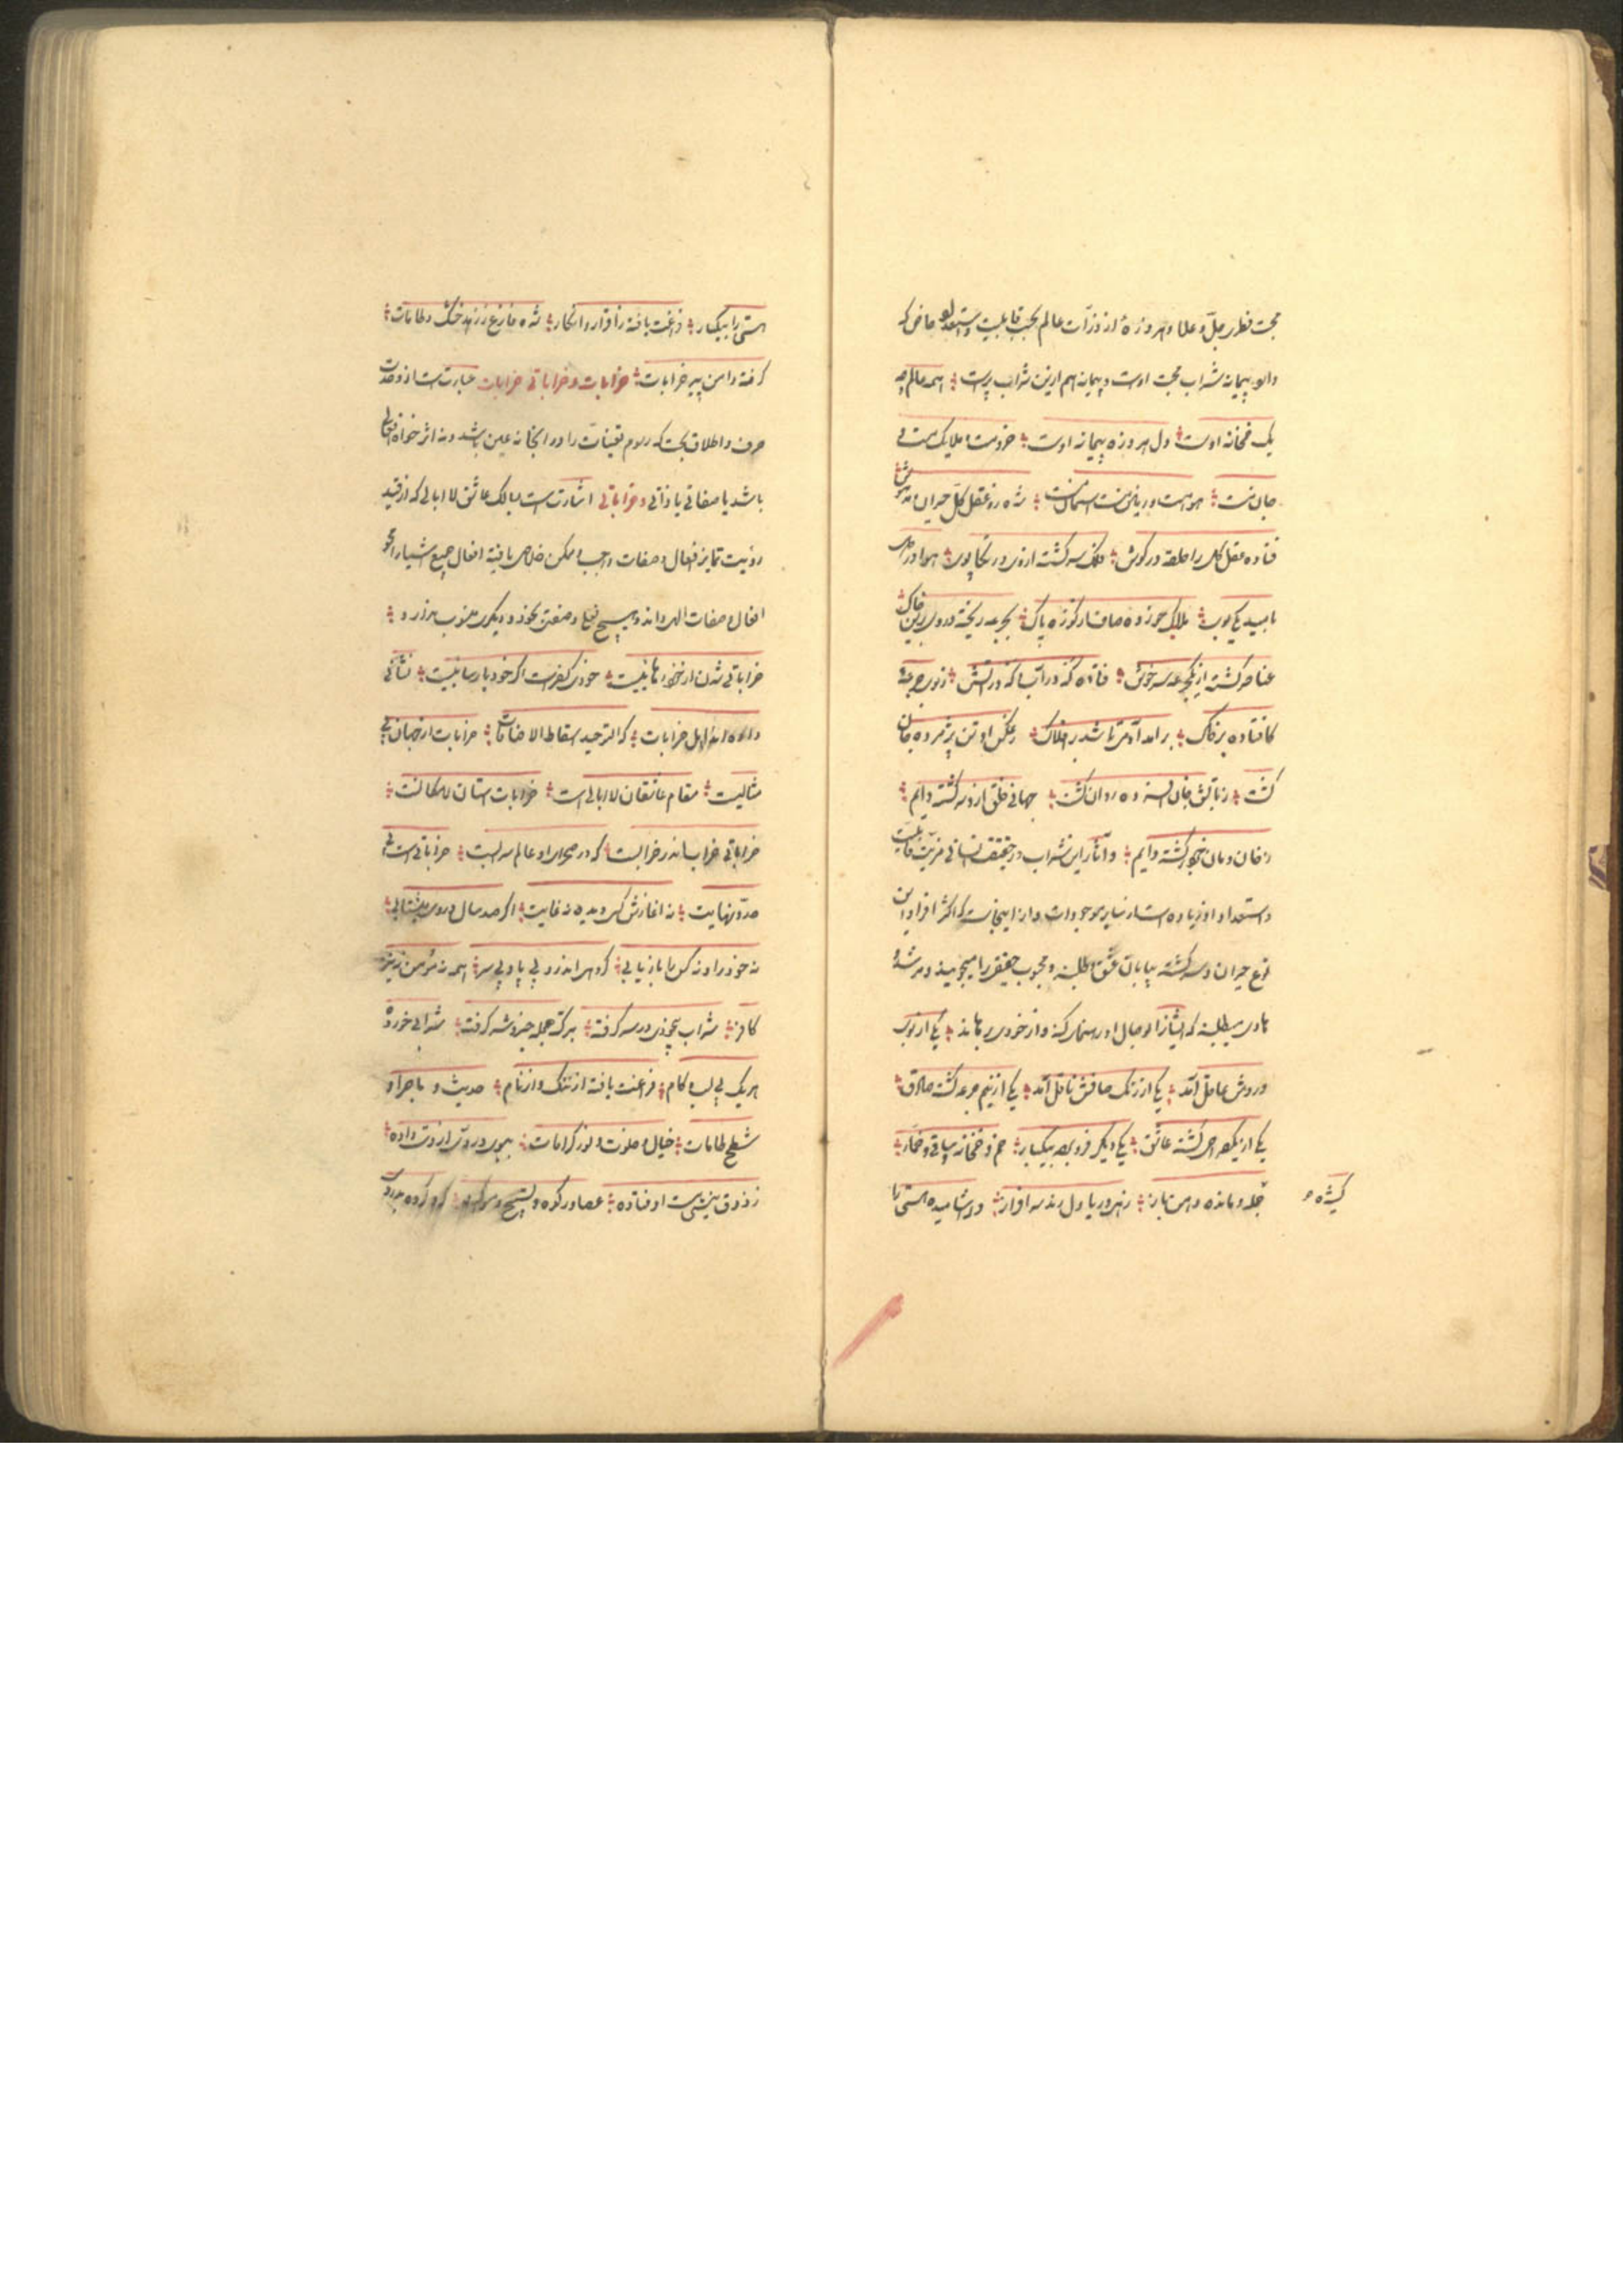 محبت فطری جلّ و علا و هر ذرهٔ از ذرّات عالم بحسب قابلیت و استعداد خاص که
دارد پیمانه شراب محبت اوست و پیمانه هم ازین شراب پرست همه عالم چو
یک خمخانه اوست دل هر ذره پیمانه اوست خرد مست و ملایک مست و
جان مست هوا مست و زمین مست آسمان مست شده زو عقل کل حیران و مدهوش
فتاده عقل کل را حلقه در گوش فلک سرگشته از وی در تکاپوی هوا در دل
بامید یکی بوی ملایک خورده صاف از کوزه پاک بجرعه ریخته دردی برین خاک
عناصر گشته زان یک جرعه سرخوش فتاده گه در آب و گه در آتش ز بوی جرعهٔ
کافتاده بر خاک برآمد آدمی تا شد بر افلاک ز عکس او تن پژمرده جان
گشت ز تابش جان افسرده روان گشت جهانی خلق ازو سرگشته دایم
ز خان و مان خود برگشته دایم و آثار این شراب در حقیقت انسانی مزیّت قابلیت
و استعداد او زیاده است از سایر موجودات و از اینجاست که اکثر افراد این
نوع حیران و سرگشته بیابان عشق و طلبند و محبوب حقیقی را میجویند و مرشد و
هادی میطلبند که ایشانرا بوصال او رهنمائی کند و از خودی برهاند یکی از بوی
دردش عاقل آمد یکی از رنگ صافش ناقل آمد یکی از نیم جرعه گشته صادق
یکی از یک صراحی گشته عاشق یکی دیگر فرو برده بیکبار خم و خمخانه و ساقی و خمّار
کشیده
جمله و مانده دهن باز زهی دریا دل رند سرافراز در آشامیده هستی را
هستی را بیکبار فراغت یافته ز اقرار و انکار شده فارغ ز زهد خشک و طامات
گرفته دامن پیر خرابات خرابات و خراباتی خرابات عبارت است از وحدت
صرف و اطلاق بحت که رسوم تعینات را در آنجا نه عین باشد و نه اثر خواه افعالی
باشد یا صفاتی یا ذاتی و خراباتی اشارت است بسالک عاشق لاابالی که از قید
رؤیت تمایز افعال و صفات واجب و ممکن خلاصی یافته افعال جمیع اشیا را محو
افعال و صفات الهی داند و هیچ فعل و صفتی بخود و دیگری منسوب ندارد
خراباتی شدن از خود رهائیست خودی کفرست اگر خود پارسائیست نشانی
داده اند اهل خرابات که التوحید اسقاط الاضافات خرابات از جهان بی
مثالیست مقام عاشقان لاابالی است خرابات آستان لامکانست
خراباتی خراب اندر خرابست که در صحرای او عالم سرابست خراباتی است بی
حدّ و نهایت نه آغازش کسی دیده نه غایت اگر صد سال در وی میشتابی
نه خود را و نه کس را باز یابی گروهی اندرو بی پا و بی سر همه نه مؤمن و نه نیز
کافر شراب بیخودی در سر گرفته بترک جمله خیر و شر گرفته شرابی خورده
هر یک بی لب و کام فراغت یافته از ننگ و از نام حدیث و ماجرای
شطح و طامات خیال خلوت و نور کرامات ببوی دردی از دست داده
ز ذوق نیستی مست اوفتاده عصا و رکوه و تسبیح و مسواک گرو کرده بدردی